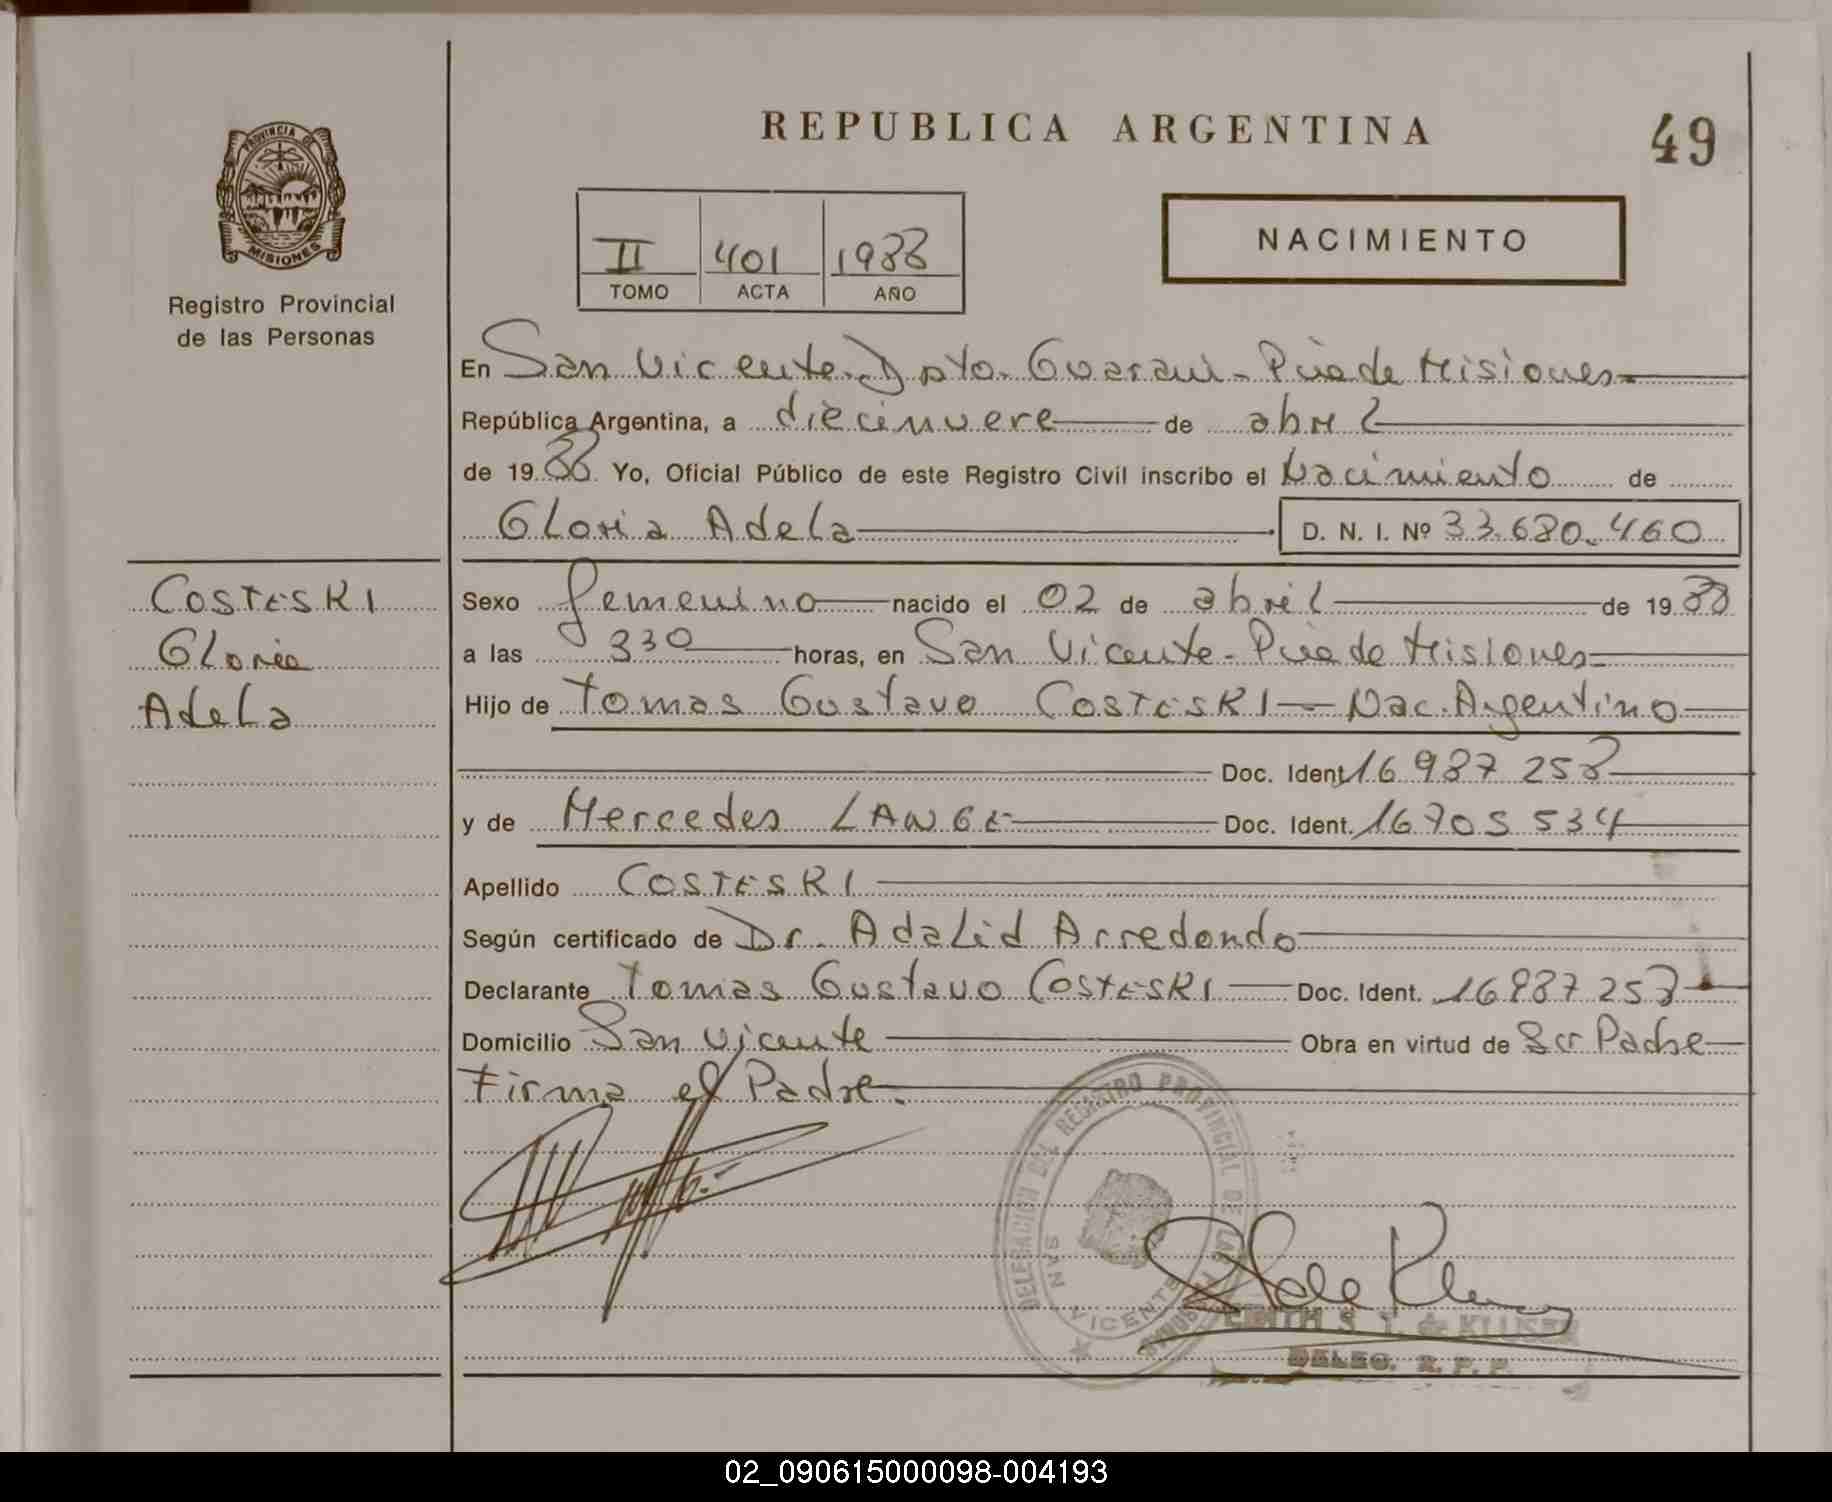 REPUBLICA ARGENTINA
49
PROVINCIA DE
MISIONES
Registro Provincial
de las Personas
II 401 1988
TOMO ACTA AÑO
NACIMIENTO
En San Vicente. Dpto. Guarani - Pcia de Misiones
República Argentina, a diecinueve de abril
de 1988 Yo, Oficial Público de este Registro Civil inscribo el Nacimiento de
Gloria Adela D. N. I. Nº 33.680.460
COSTESKI
Gloria
Adela
Sexo femenino nacido el 02 de abril de 1988
a las 330 horas, en San Vicente - Pcia de Misiones
Hijo de Tomas Gustavo COSTESKI - Nac. Argentino
Doc. Ident 16 987 258
y de Mercedes LANGE Doc. Ident. 16 705 534
Apellido COSTESKI
Según certificado de Dr. Adalid Arredondo
Declarante Tomas Gustavo COSTESKI Doc. Ident. 16987 258
Domicilio San Vicente Obra en virtud de Ser Padre
Firma el Padre.
DELEGACION DEL REGISTRO PROVINCIAL DE LAS PERSONAS
SAN VICENTE
EDITH S. T. de KLUSER
DELEG. R. P. P.
02_090615000098-004193